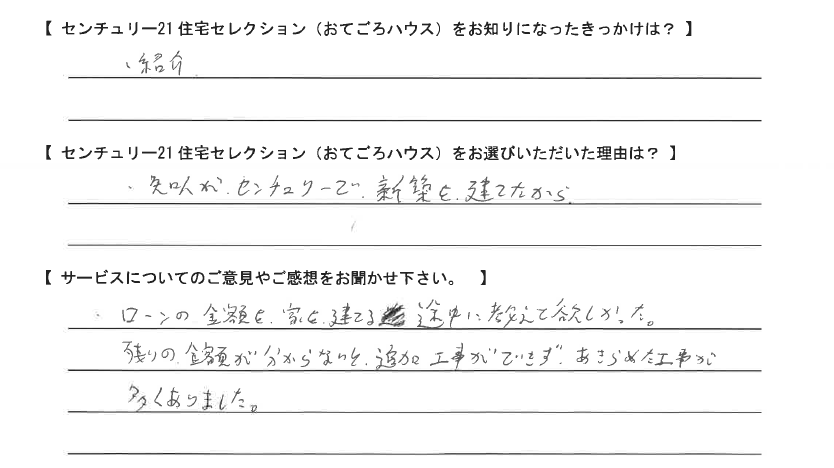 【 センチュリー21 住宅セレクション（おてごろハウス）をお知りになったきっかけは？ 】
・紹介
【 センチュリー21 住宅セレクション（おてごろハウス）をお選びいただいた理由は？ 】
・知人が、センチュリーで、新築を、建てたから。
【 サービスについてのご意見やご感想をお聞かせ下さい。 】
・ローンの金額を、家を、建てる途中に教えて欲しかった。
残りの、金額が分からないと、追加工事ができず、あきらめた工事が
多くありました。